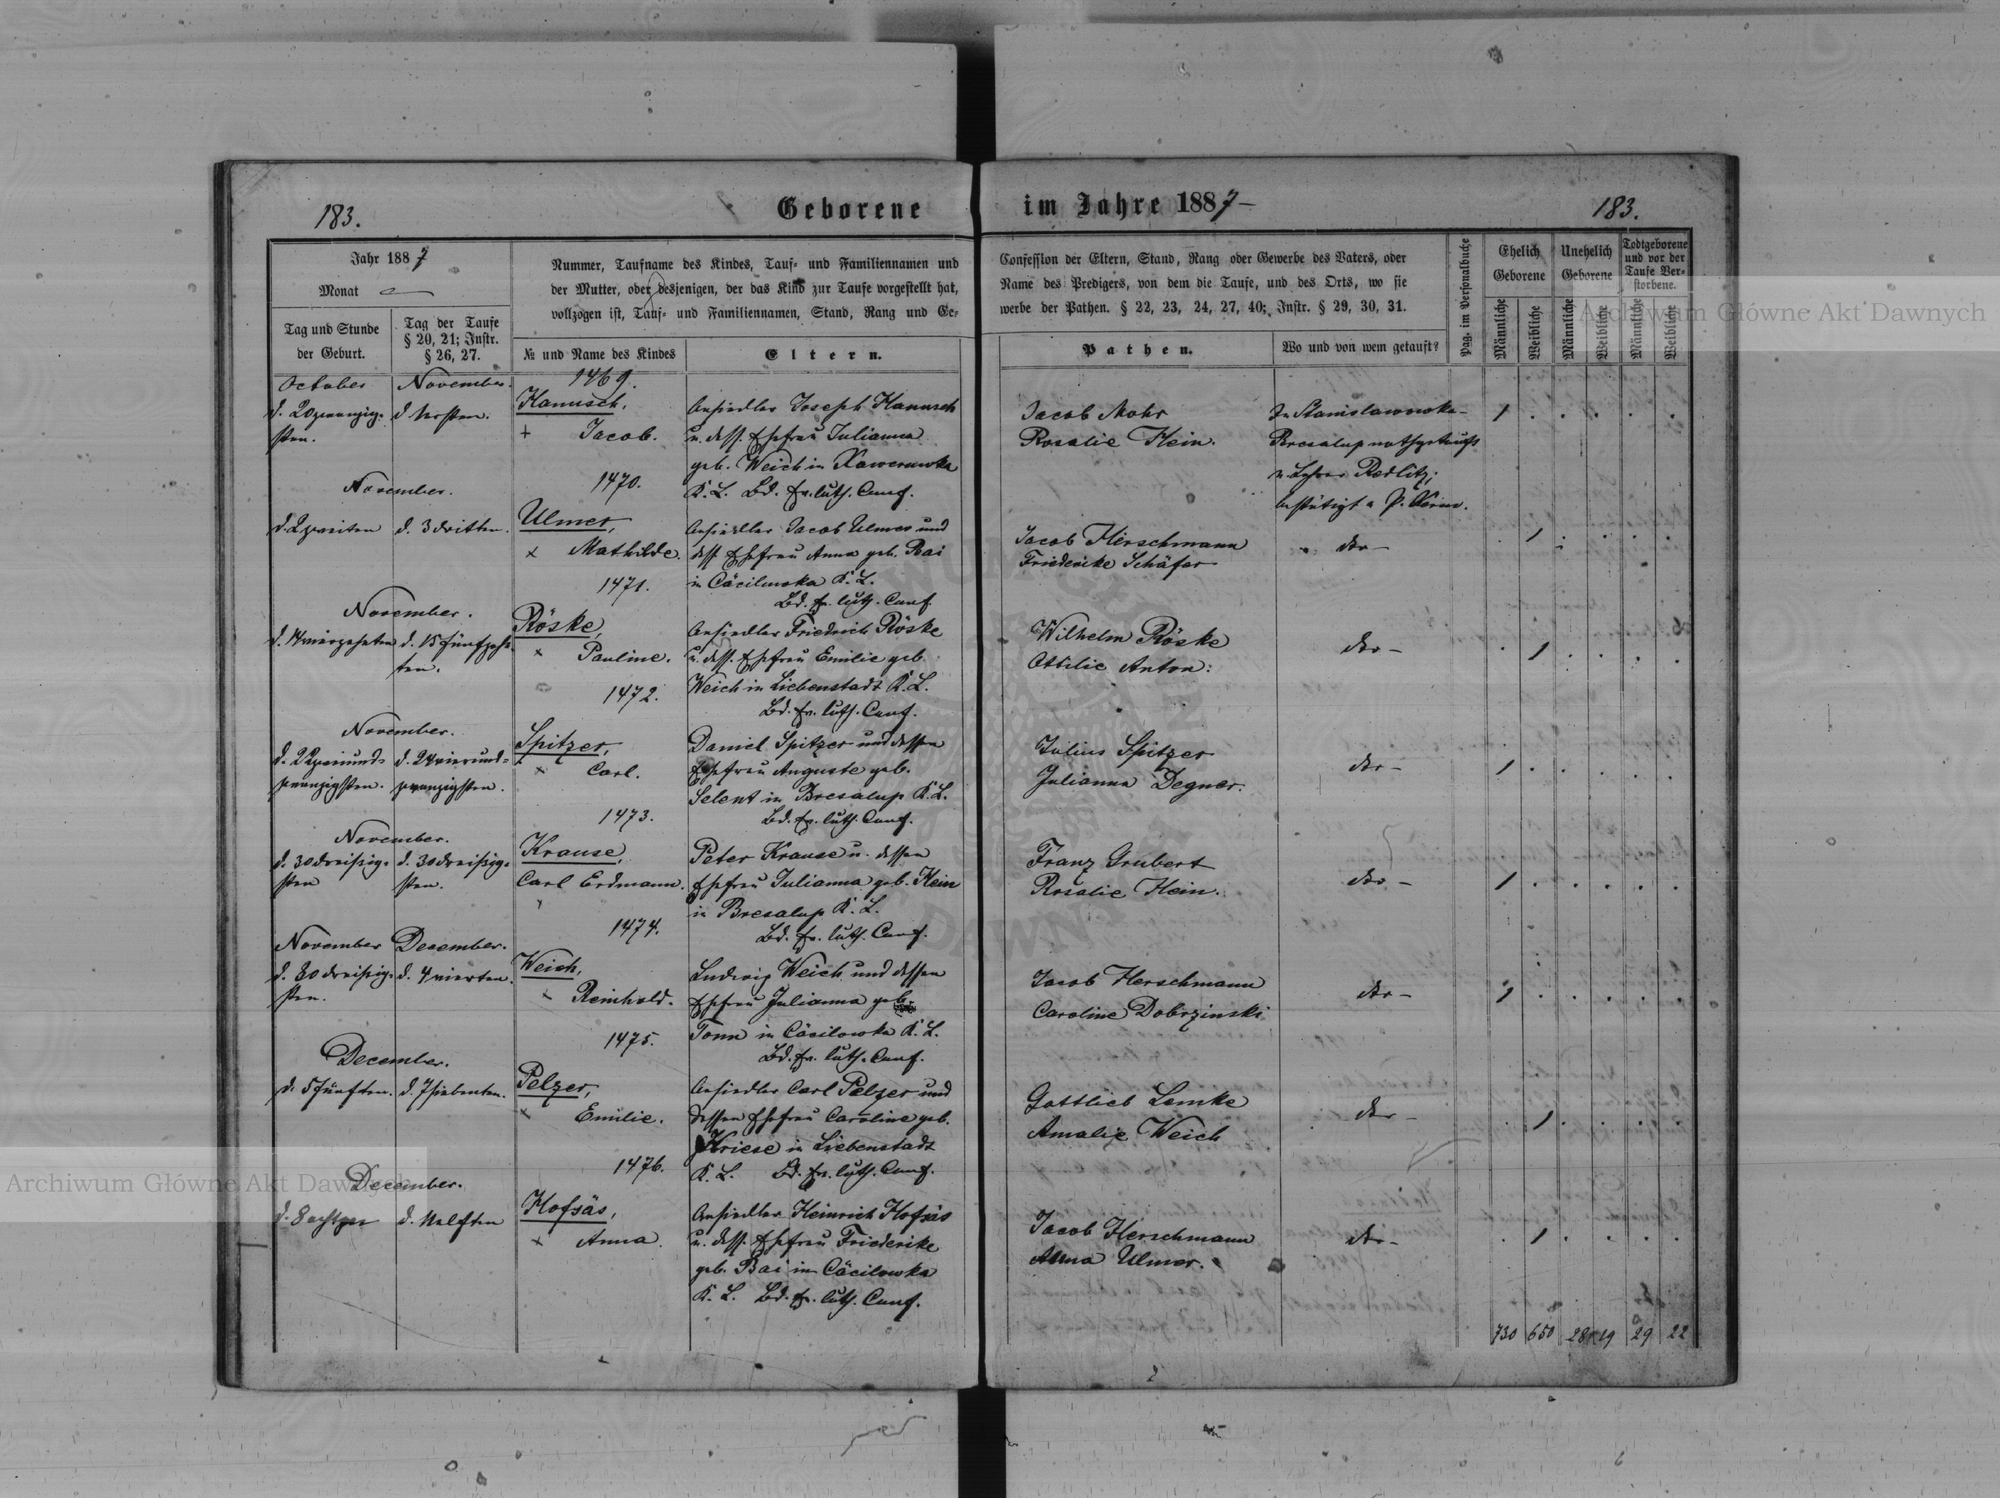 183.
Geborene
im Jahre 1887
183.
Jahr 1887
Monat
Tag und Stunde
der Geburt.
Tag der Taufe
§ 20, 21; Instr.
§ 26, 27.
Nummer, Taufname des Kindes, Tauf- und Familiennamen und
der Mutter, oder desjenigen, der das Kind zur Taufe vorgestellt hat,
vollzogen ist, Tauf- und Familiennamen, Stand, Rang und Ge-
№ und Name des Kindes
Eltern.
Confession der Eltern, Stand, Rang oder Gewerbe des Vaters, oder
Name des Predigers, von dem die Taufe, und des Orts, wo sie
werbe der Pathen. § 22, 23, 24, 27, 40; Instr. § 29, 30, 31.
Pathen.
Wo und von wem getauft?
Pag. im Personalbuche
Ehelich
Geborene
Unehelich
Geborene
Todtgeborene
und vor der
Taufe Ver-
storbene.
Männliche
Weibliche
Männliche
Weibliche
Männliche
Weibliche
October
d. 20zwanzig-
sten.
November.
d. 1sten.
1469.
Hanusch,
+ Jacob.
Ansiedler Joseph Hanusch
u. dess. Ehefrau Julianna
geb. Weich in Xawerowka
K. L. Bd. Ev. luth. Conf.
Jacob Mohr
Rosalie Hein.
In Stanislawowka-
Bresalup nothgetauft
v. Lehrer Redlitz;
bestätigt v. P.
1 . . . . .
November.
d. 2zweiten
d. 3dritten.
1470.
Ulmer,
x Mathilde.
Ansiedler Jacob Ulmer und
dess. Ehefrau Anna geb. Bai
in Cäcilowka K. L.
Bd. Ev. luth. Conf.
Jacob Herschmann
Friederike Schäfer
dto -
. 1 . . . .
November.
d. 14vierzehnten
d. 15fünfzehn-
ten.
1471.
Röske,
x Pauline.
Ansiedler Friedrich Röske
u. dess. Ehefrau Emilie geb.
Weich in Liebenstadt K. L.
Bd. Ev. luth. Conf.
Wilhelm Röske
Ottilie Anton.
dto -
. 1 . . . .
November.
d. 22zweiund-
zwanzigsten.
d. 24vierund-
zwanzigsten.
1472.
Spitzer,
x Carl.
Daniel Spitzer und dessen
Ehefrau Auguste geb.
Selent in Bresalup K. L.
Bd. Ev. luth. Conf.
Julius Spitzer
Julianna Degner.
dto -
1 . . . . .
November.
d. 30dreißig-
sten
d. 30dreißig-
sten.
1473.
Krause,
Carl Erdmann.
Peter Krause u. dessen
Ehefrau Julianna geb. Hein
in Bresalup K. L.
Bd. Ev. luth. Conf.
Franz Grubert
Rosalie Hein.
dto -
1 . . . . .
November
d. 30dreißig-
sten.
December.
d. 4vierten.
1474.
Weich,
x Reinhold.
Ludwig Weich und dessen
Ehefrau Julianna geb.
Tonn in Cäcilowka K. L.
Bd. Ev. luth. Conf.
Jacob Herschmann
Caroline Dobrzinski
dto -
1 . . . . .
December.
d. 5fünften.
d. 7siebenten.
1475.
Pelzer,
x Emilie.
Ansiedler Carl Pelzer und
dessen Ehefrau Caroline geb.
Kriese in Liebenstadt
K. L. Bd. Ev. luth. Conf.
Gottlieb Lemke
Amalie Weich
dto
. 1 . . . .
December.
d. 8achten
d. 11elften
1476.
Hofsäs,
x Anna.
Ansiedler Heinrich Hofsäs
u. dess. Ehefrau Friederike
geb. Bai in Cäcilowka
K. L. Bd. Ev. luth. Conf.
Jacob Herschmann
Anna Ulmer.
dto -
. 1 . . . .
730 650 28 19 29 22
Archiwum Główne Akt Dawnych
Archiwum Główne Akt Dawnych